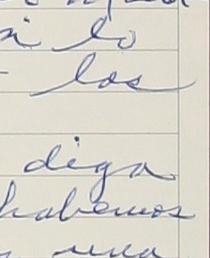 lo
los
diga
habemos
una